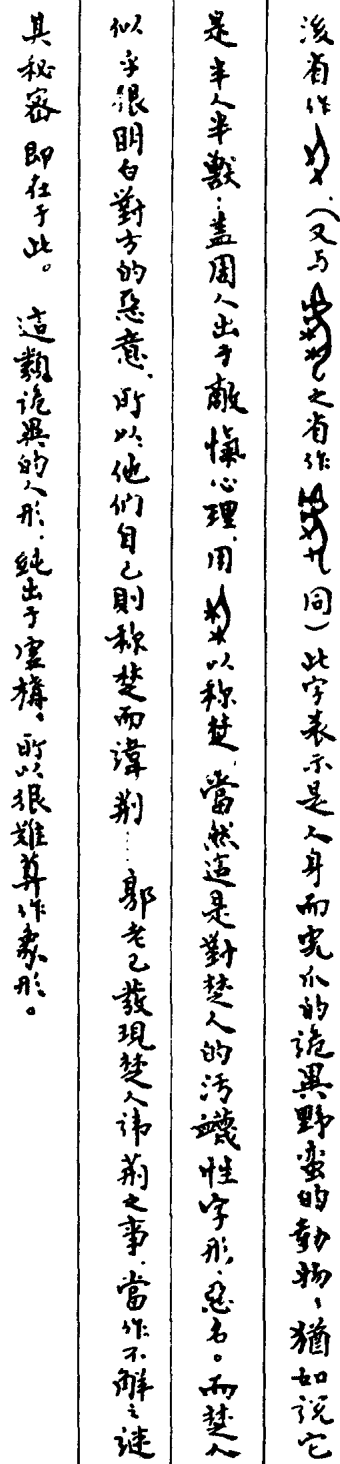 後省作、(又与之省作同)此字表示是人身而鬼爪的詭異野蛮的動物,猶如說它
是半人半獸…蓋周人出于敵愾心理,用以称楚,當然這是對楚人的污衊性字形、惡名。而楚人
似乎很明白對方的惡意,所以他們自己則称楚而諱荆……郭老已發現楚人讳荆之事,當作不解之谜
其秘密即在于此。這類詭異的人形,純出于虚構。所以很難算作象形。